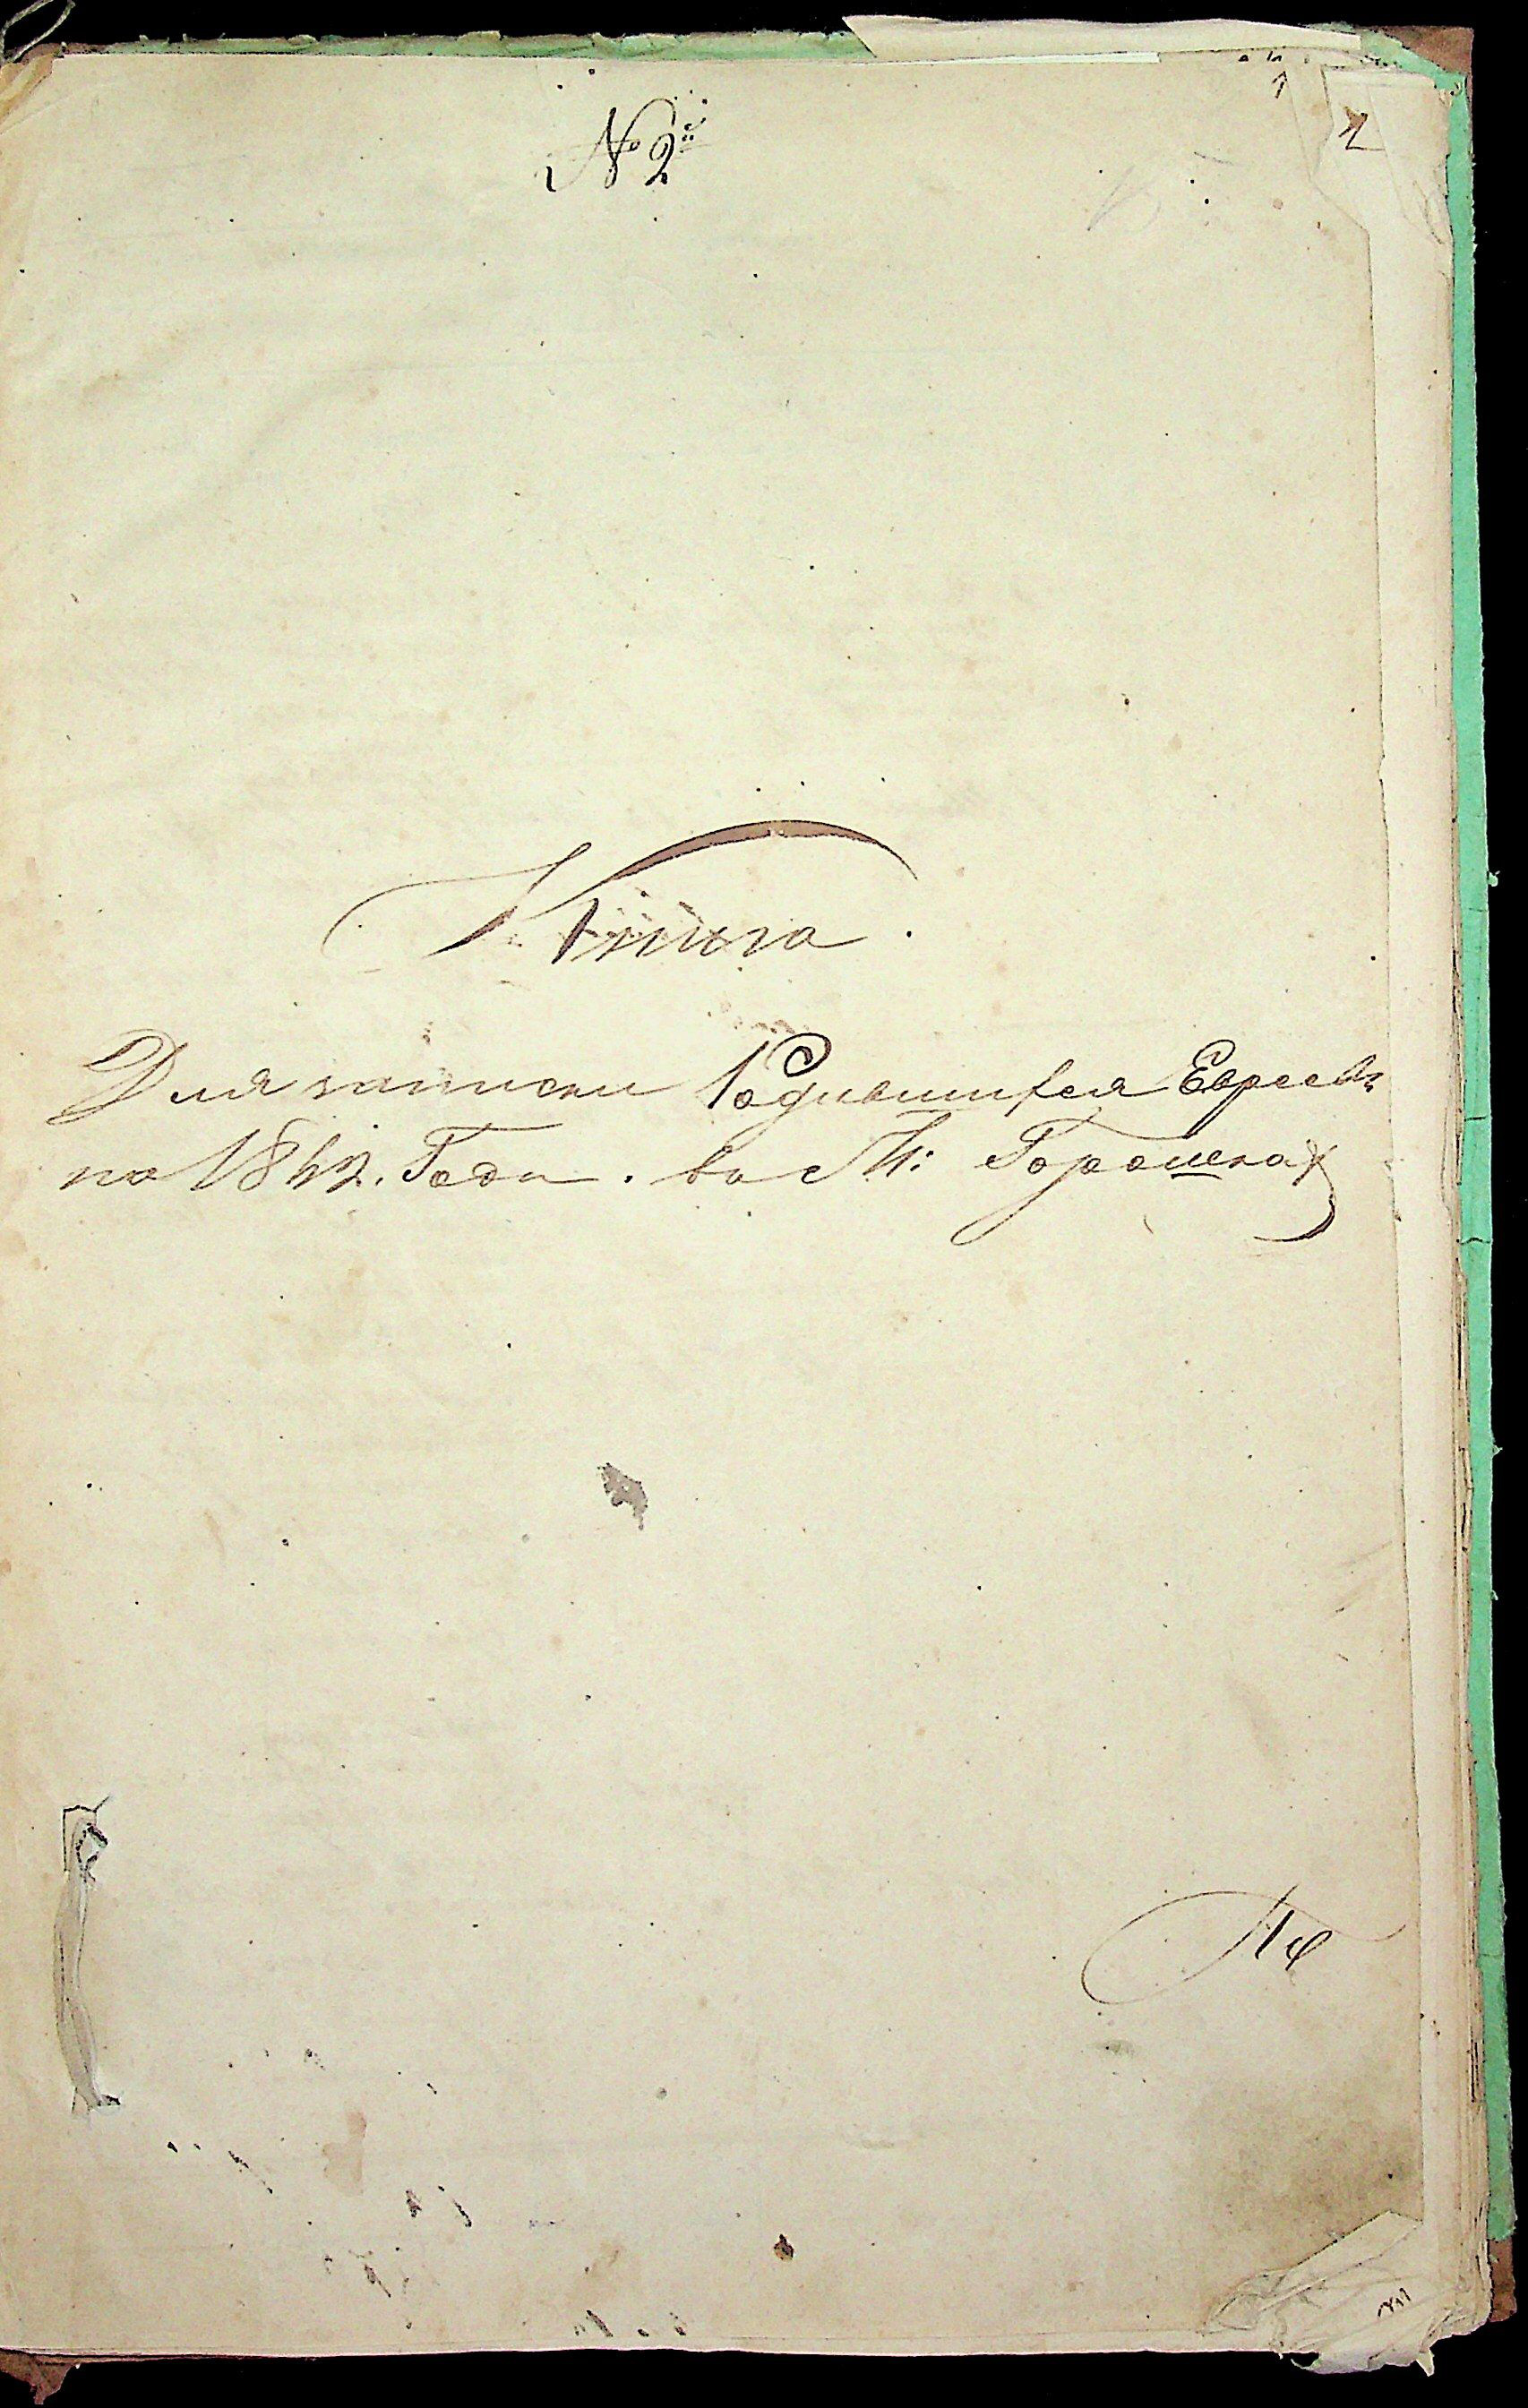 № 2й
1
Книга.
Для записки Родившихся Евреевъ
на 1842. Года. въ М: Горошках